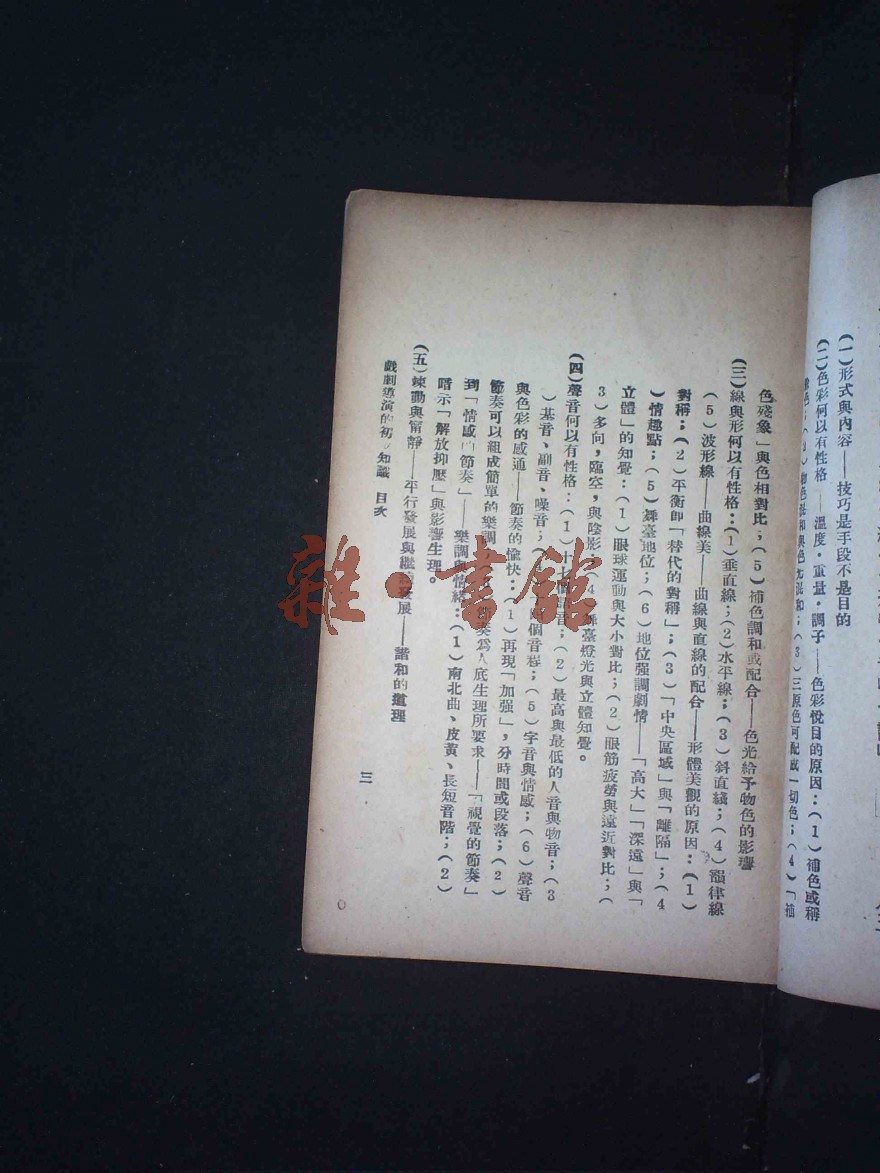 (一)形式與內容——技巧是手段不是目的
(二)色彩何以有性格——溫度·重量·調子——色彩悅目的原因:(1)補色或稱
色混和與色光混和;(3)三原色可配成一切色;(4)「補
色殘象」與色相對比;(5)補色調和或配合——色光給予物色的影響
(三)線與形何以有性格:(1)垂直線;(2)水平線;(3)斜直綫;(4)韻律線
(5)波形線——曲線美——曲線與直線的配合——形體美觀的原因:(1)
對稱;(2)平衡即「替代的對稱」;(3)「中央區域」與「離隔」;(4
)情趣點;(5)舞臺地位;(6)地位强調劇情——「高大」「深遠」與「
立體」的知覺:(1)眼球運動與大小對比;(2)眼筋疲勞與遠近對比;(
3)多向,臨空,與陰影;(4)舞臺燈光與立體知覺。
(四)聲音何以有性格:(1)十七個語音;(2)最高與最低的人音與物音;(3
)基音、副音、噪音;(4)個音程;(5)字音與情感;(6)聲音
與色彩的感通——節奏的愉快:(1)再現「加强」,分時間或段落;(2)
節奏可以組成簡單的樂調;節奏爲人底生理所要求——「視覺的節奏」
到「情感的節奏」——樂調與情緒:(1)南北曲、皮黃、長短音階;(2)
暗示「解放抑壓」與影響生理。
(五)竦動與甯靜——平行發展與繼續發展——諧和的道理
戲劇導演的初步知識 目次
三
雜·書館